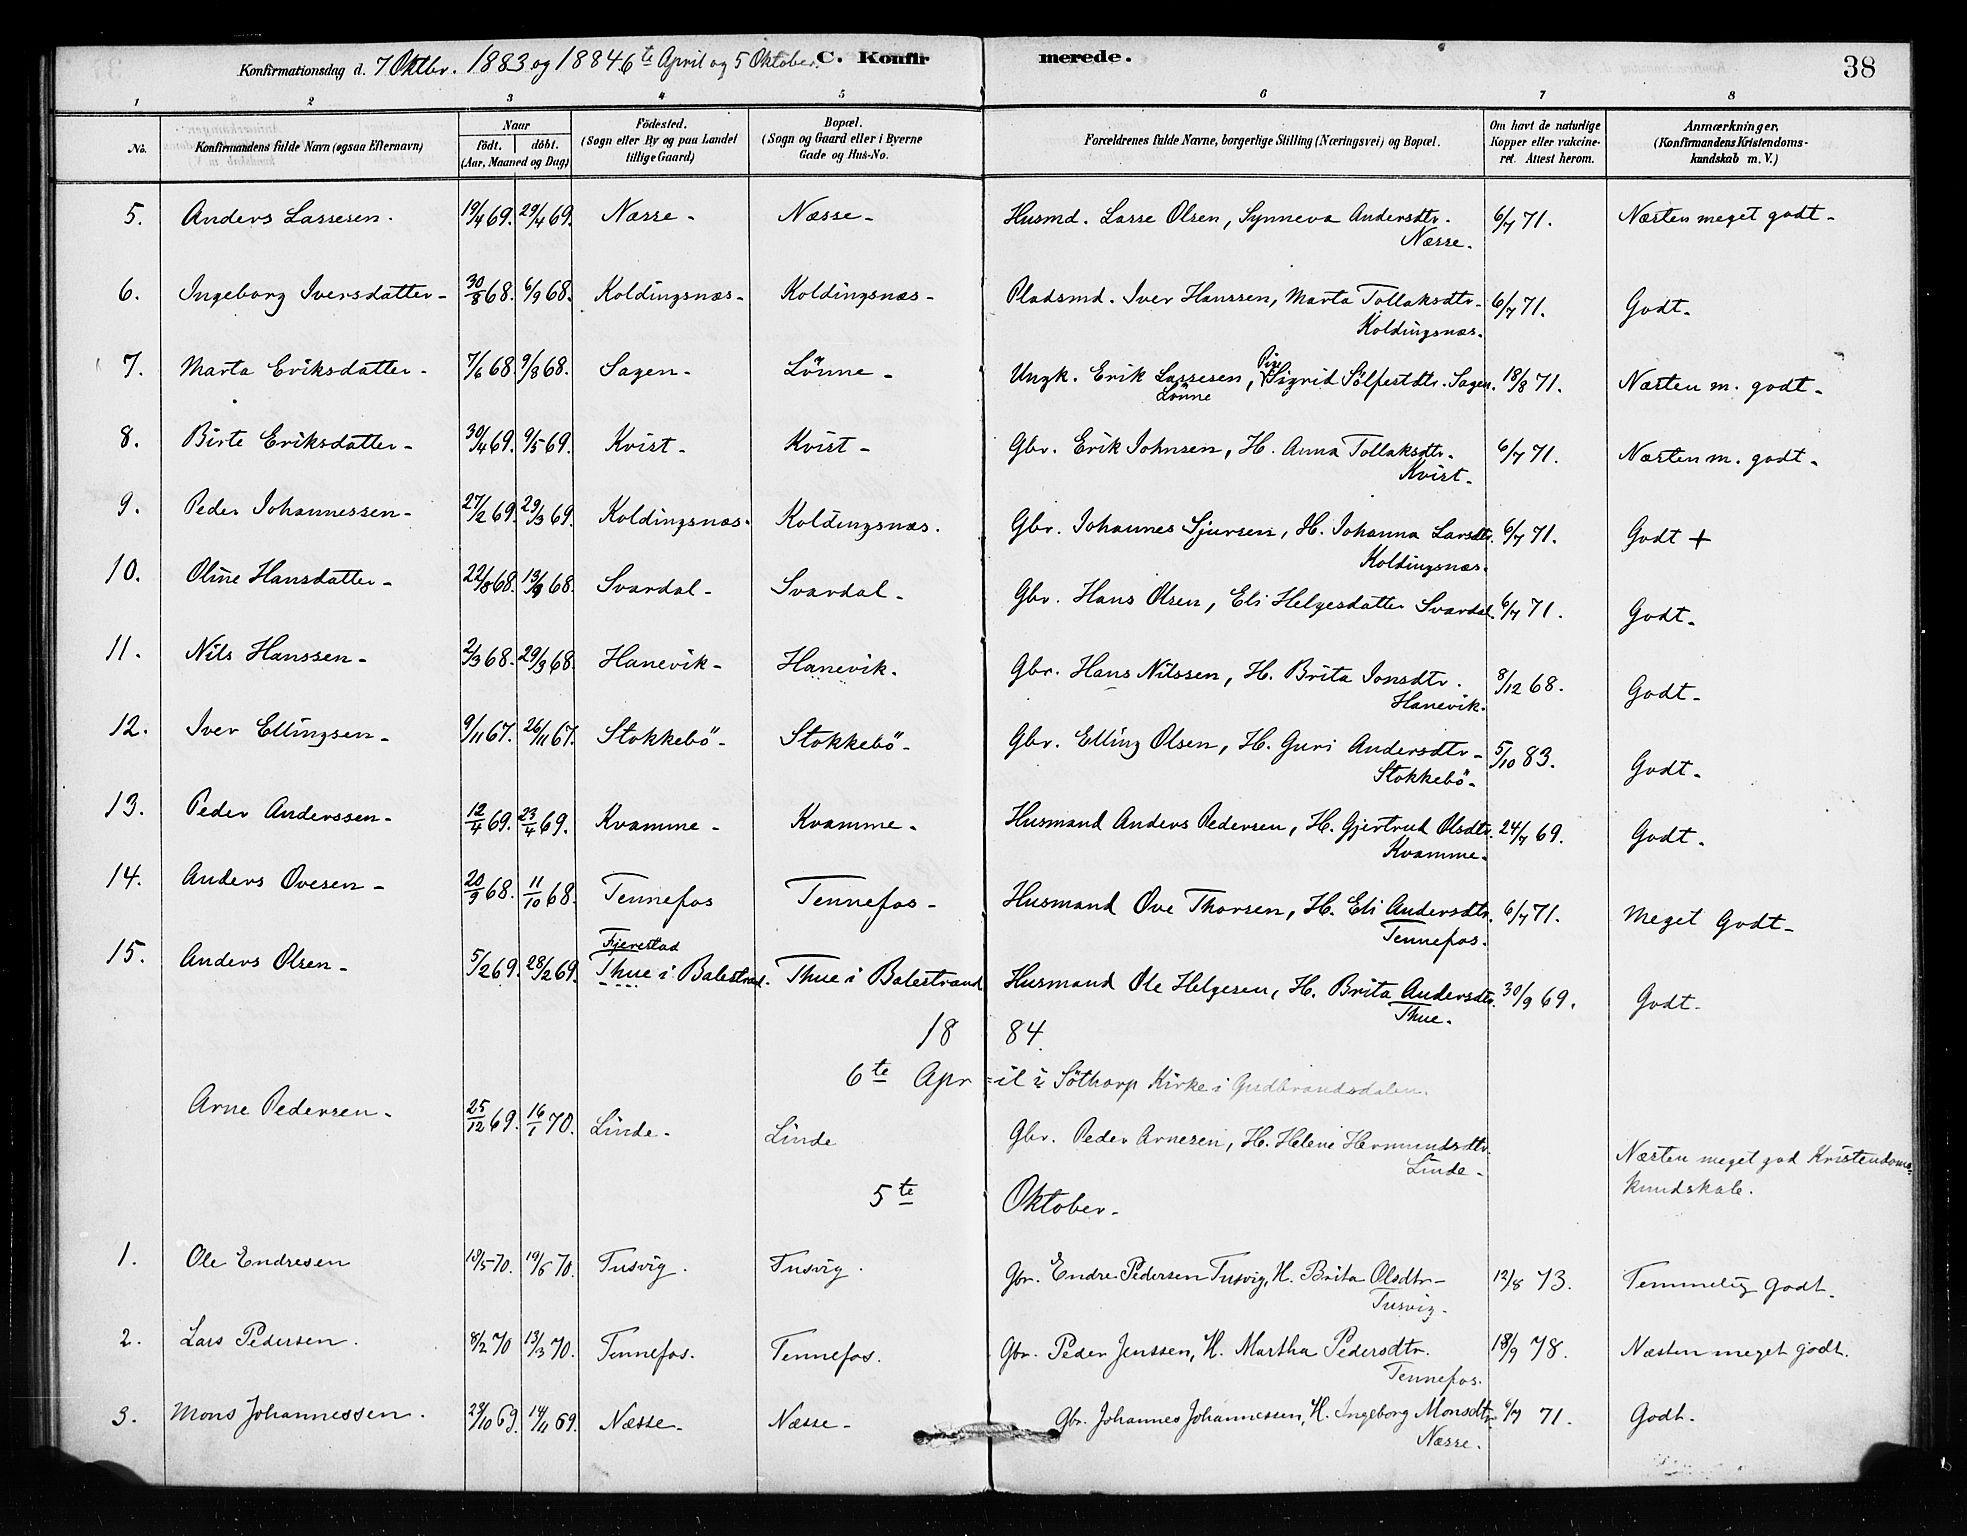 Konfirmationsdag d. 7 Oktbr. 1883 og 1884 6te April og 5 Oktober. C. Konfirmerede. 38
1 2 3 4 5 6 7 8
No. Konfirmandens fulde Navn (ogsaa Efternavn) Naar født. døbt. (Aar, Maaned og Dag) Födested. (Sogn eller By og paa Landet tillige Gaard) Bopæl. (Sogn og Gaard eller i Byerne Gade og Hus-No. Forældrenes fulde Navne, borgerlige Stilling (Næringsvei) og Bopæl. Om havt de naturlige Kopper eller vakcineret. Attest herom. Anmærkninger. (Konfirmandens Kristendomskundskab m. V.)
5. Anders Lassesen. 19/4 69. 29/4 69. Næsse - Næsse - Husmd. Lasse Olsen, Synneva Andersdtr. 6/7 71. Næsten meget godt -
Næsse.
6. Ingeborg Iversdatter - 30/8 68. 6/9 68. Koldingsnæs - Koldingsnæs - Pladsmd. Iver Hanssen, Marta Tollaksdtr - 6/7 71. Godt -
Koldingsnæs.
7. Marta Eriksdatter - 7/6 68. 9/8 68. Sagen - Lönne - Ungk. Erik Lassesen, Pige Sigrid Sölfestdtr. Sagen. 18/8 71. Næsten m. godt -
Lönne
8. Birte Eriksdatter - 30/4 69. 9/5 69. Kvist - Kvist - Gbr. Erik Johnsen, H. Anna Tollaksdtr. 6/7 71. Næsten m. godt -
Kvist -
9. Peder Johannessen - 27/2 69. 29/3 69. Koldingsnæs. Koldingsnæs. Gbr. Johannes Sjursen, H. Johanna Larsdtr. 6/7 71. Godt +
Koldingsnæs.
10. Oline Hansdatter - 22/8 68. 13/9 68. Svardal - Svardal - Gbr. Hans Olsen, Eli Helgesdatter Svardal. 6/7 71. Godt -
11. Nils Hanssen - 2/3 68. 29/3 68. Hanevik - Hanevik. Gbr. Hans Nilssen, H. Brita Jonsdtr. 8/12 68. Godt -
Hanevik.
12. Iver Ellingsen - 9/11 67. 26/11 67. Stokkebö - Stokkebö - Gbr. Elling Olsen, H. Guri Andersdtr - 5/10 83. Godt -
Stokkebö -
13. Peder Anderssen - 12/4 69. 23/4 69. Kvamme - Kvamme - Husmand Anders Pedersen, H. Gjertrud Olsdtr. 24/7 69. Godt -
Kvamme -
14. Anders Ovesen - 20/9 68. 11/10 68. Tennefos Tennefos - Husmand Ove Thorsen, H. Eli Andersdtr. 6/7 71. Meget Godt -
Tennefos.
15. Anders Olsen - 5/2 69. 28/2 69. Fjærestad Thue i Balestrand. Thue i Balestrand Husmand Ole Helgesen, H. Brita Andersdtr. 30/9 69. Godt -
Thue.
1884.
6te April i Söthorp Kirke i Gudbrandsdalen.
Arne Pedersen - 25/12 69. 16/1 70. Linde - Linde Gbr. Peder Arnesen, H. Helene Hermundsdtr. Næsten meget god Kristendoms-
Linde - kundskab.
5te Oktober -
1. Ole Endresen 18/5 70. 19/6 70. Tusvig. Tusvig. Gbr. Endre Pedersen Tusvig, H. Brita Olsdtr - 12/8 73. Temmelig Godt.
Tusvig -
2. Lars Pedersen. 8/2 70 13/3 70. Tennefos. Tennefos. Gbr. Peder Jenssen, H. Martha Pedersdtr. 18/9 78. Næsten meget godt.
Tennefos.
3. Mons Johannessen. 29/10 69. 14/11 69. Næsse - Næsse - Gbr. Johannes Johannessen, H. Ingeborg Monsdtr - 6/7 71. Godt -
Næsse.